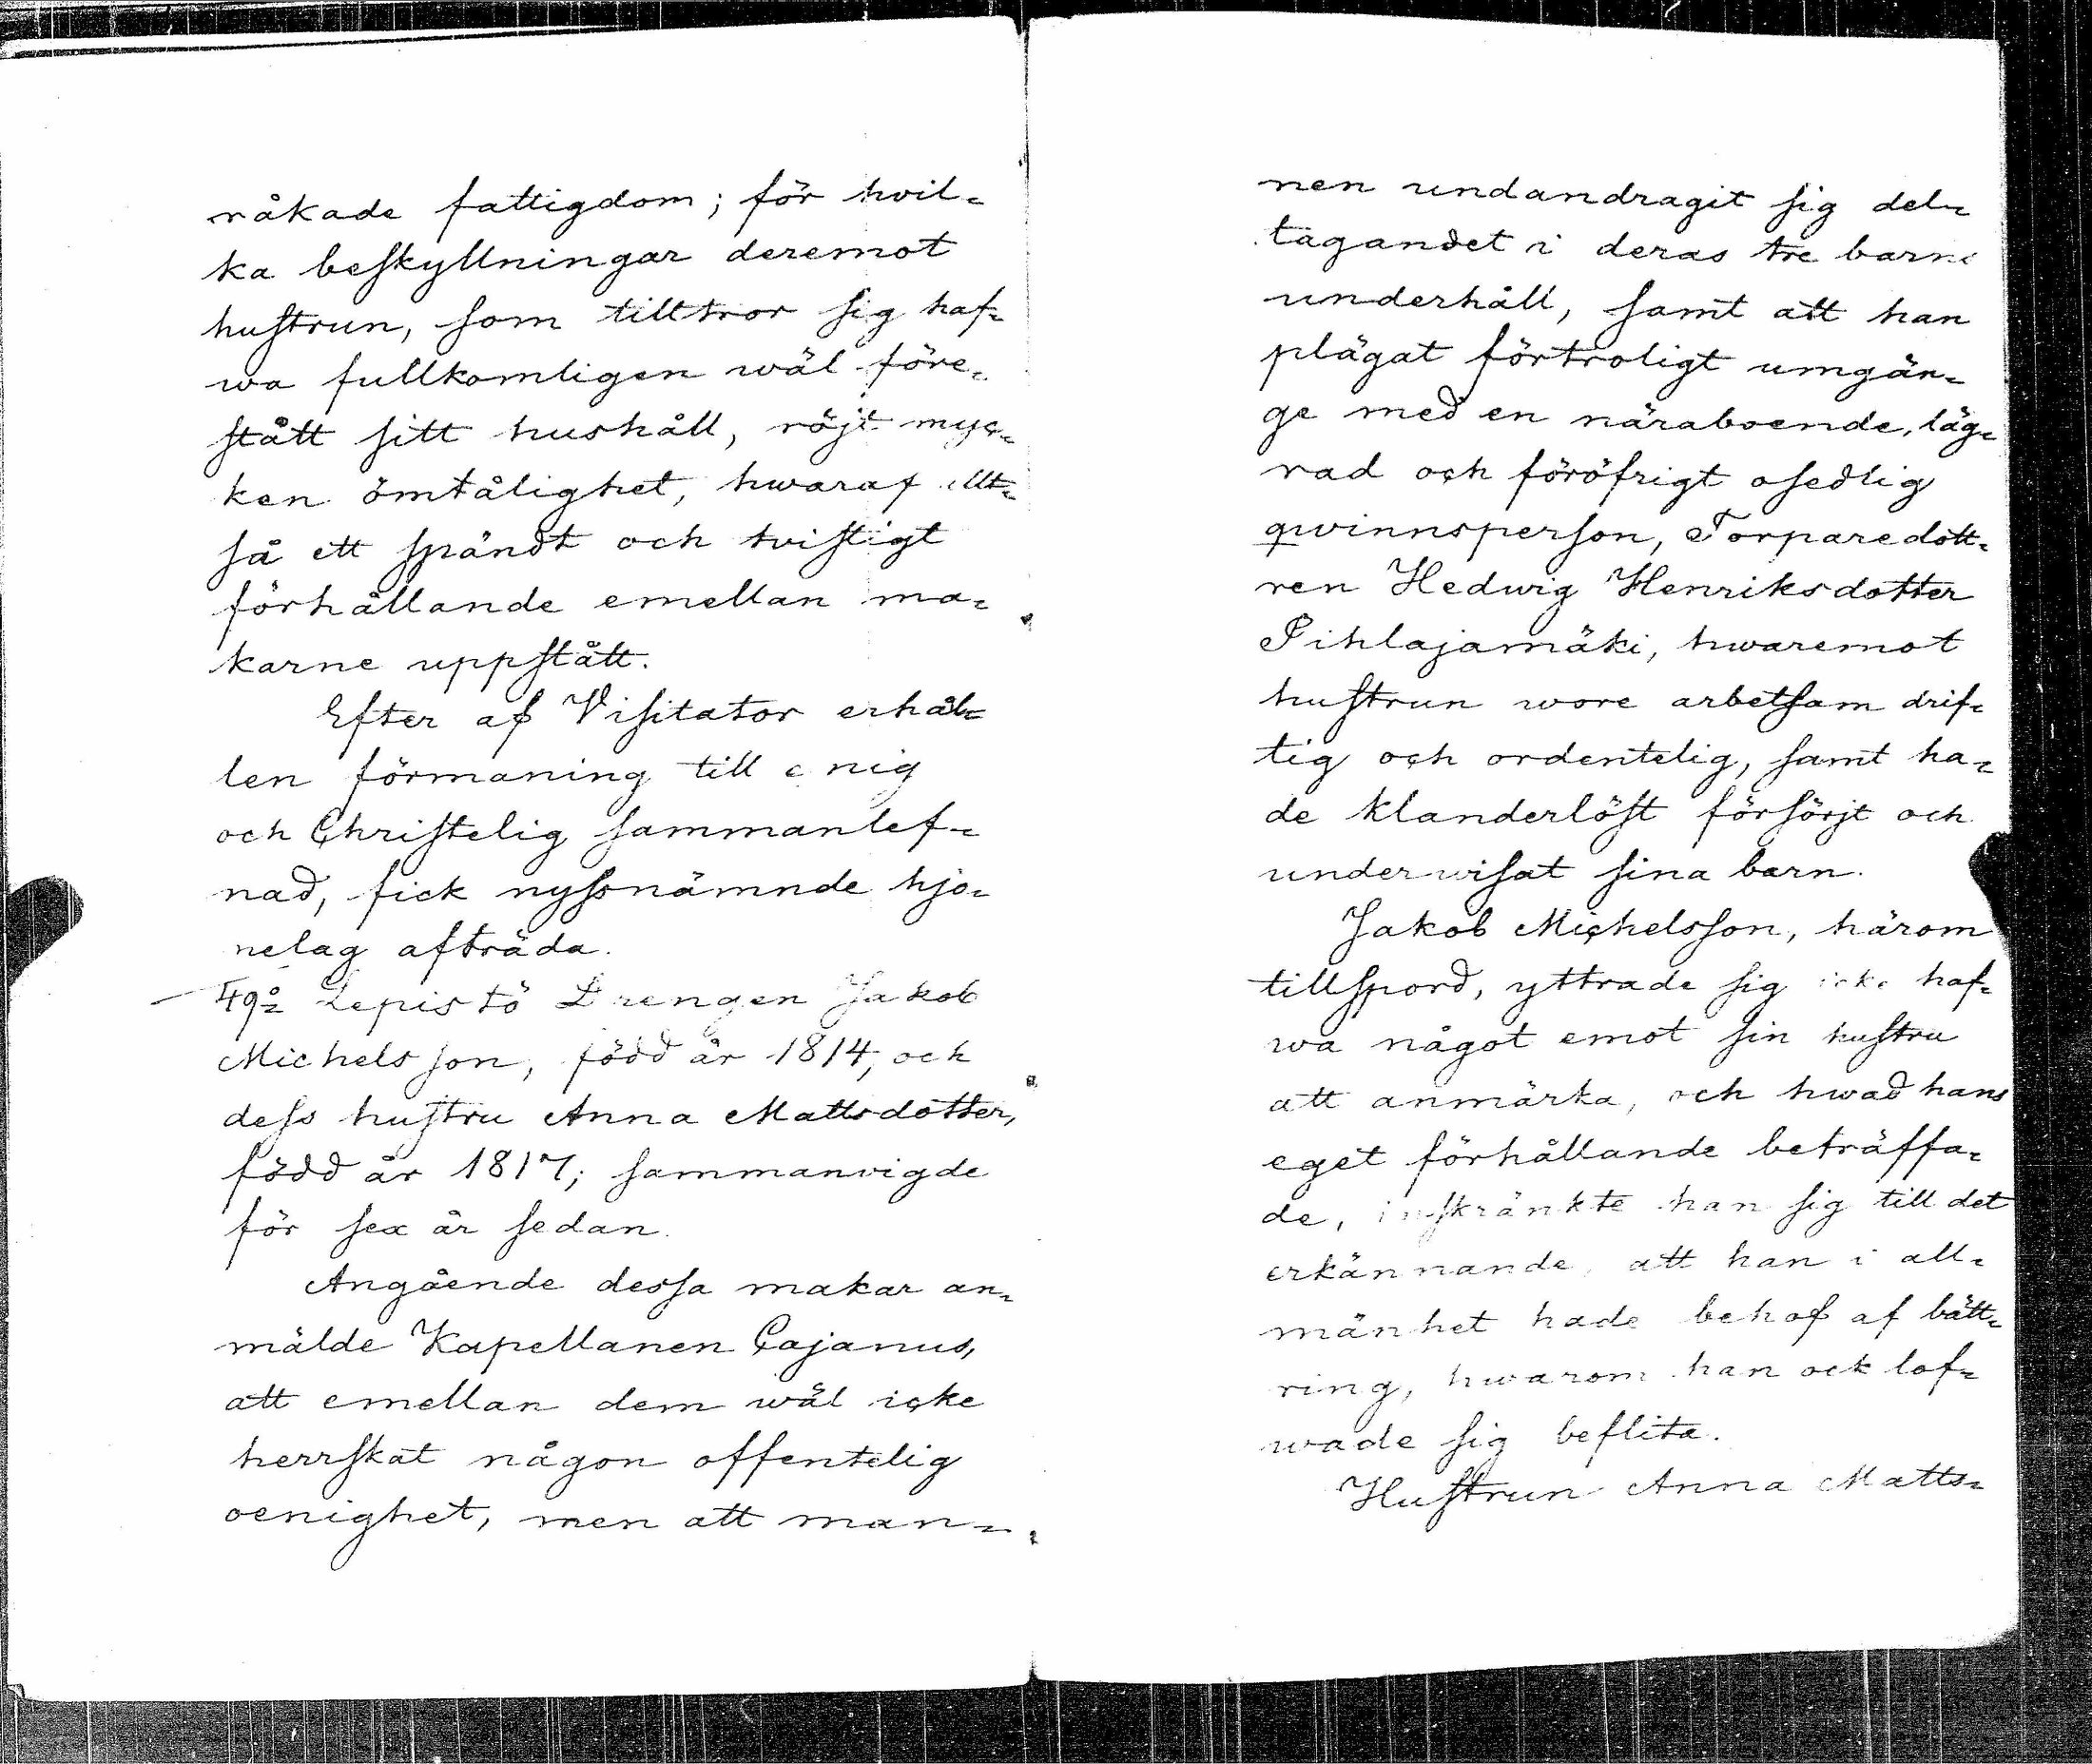 råkade fattigdom; för hvil=
ka beskyllningar deremot
hustrun, som tilltror sig haf=
wa fullkomligen wäl före=
stått sitt hushåll, röjt myc=
ken ömtålighet, hwaraf allt=
så ett spändt och tvistigt
förhållande emellan ma=
karne uppstått.
Efter af Visitator erhål=
len förmaning till enig
och Christelig sammanlef=
nad, fick nyssnämnde hjo=
nelag afträda.
49o Lepistö Drengen Jakob
Michelsson, född år 1814, och
dess hustru Anna Mattsdotter,
född år 1817; sammanvigde
för sex år sedan.
Angående dessa makar an=
mälde Kapellanen Cajanus,
att emellan dem wäl icke
herrskat någon offentelig
oenighet, men att man=
nen undandragit sig del=
tagandet i deras tre barns
underhåll, samt att han
plägat förtroligt umgän=
ge med en näraboende, läg=
rad och föröfrigt osedlig
qwinnsperson, Torparedott=
ren Hedwig Henriksdotter
Pihlajamäki, hwaremot
hustrun wore arbetsam drif=
tig och ordentelig, samt ha=
de klanderlöst försörjt och
underwisat sina barn.
Jakob Michelsson, härom
tillspord, yttrade sig icke haf=
wa något emot sin hustru
att anmärka, och hwad hans
eget förhållande beträffa=
de, inskränkte han sig till det
erkännande, att han i all=
mänhet hade behof af bätt=
ring, hwarom han ock lof=
wade sig beflita.
Hustrun Anna Matts=